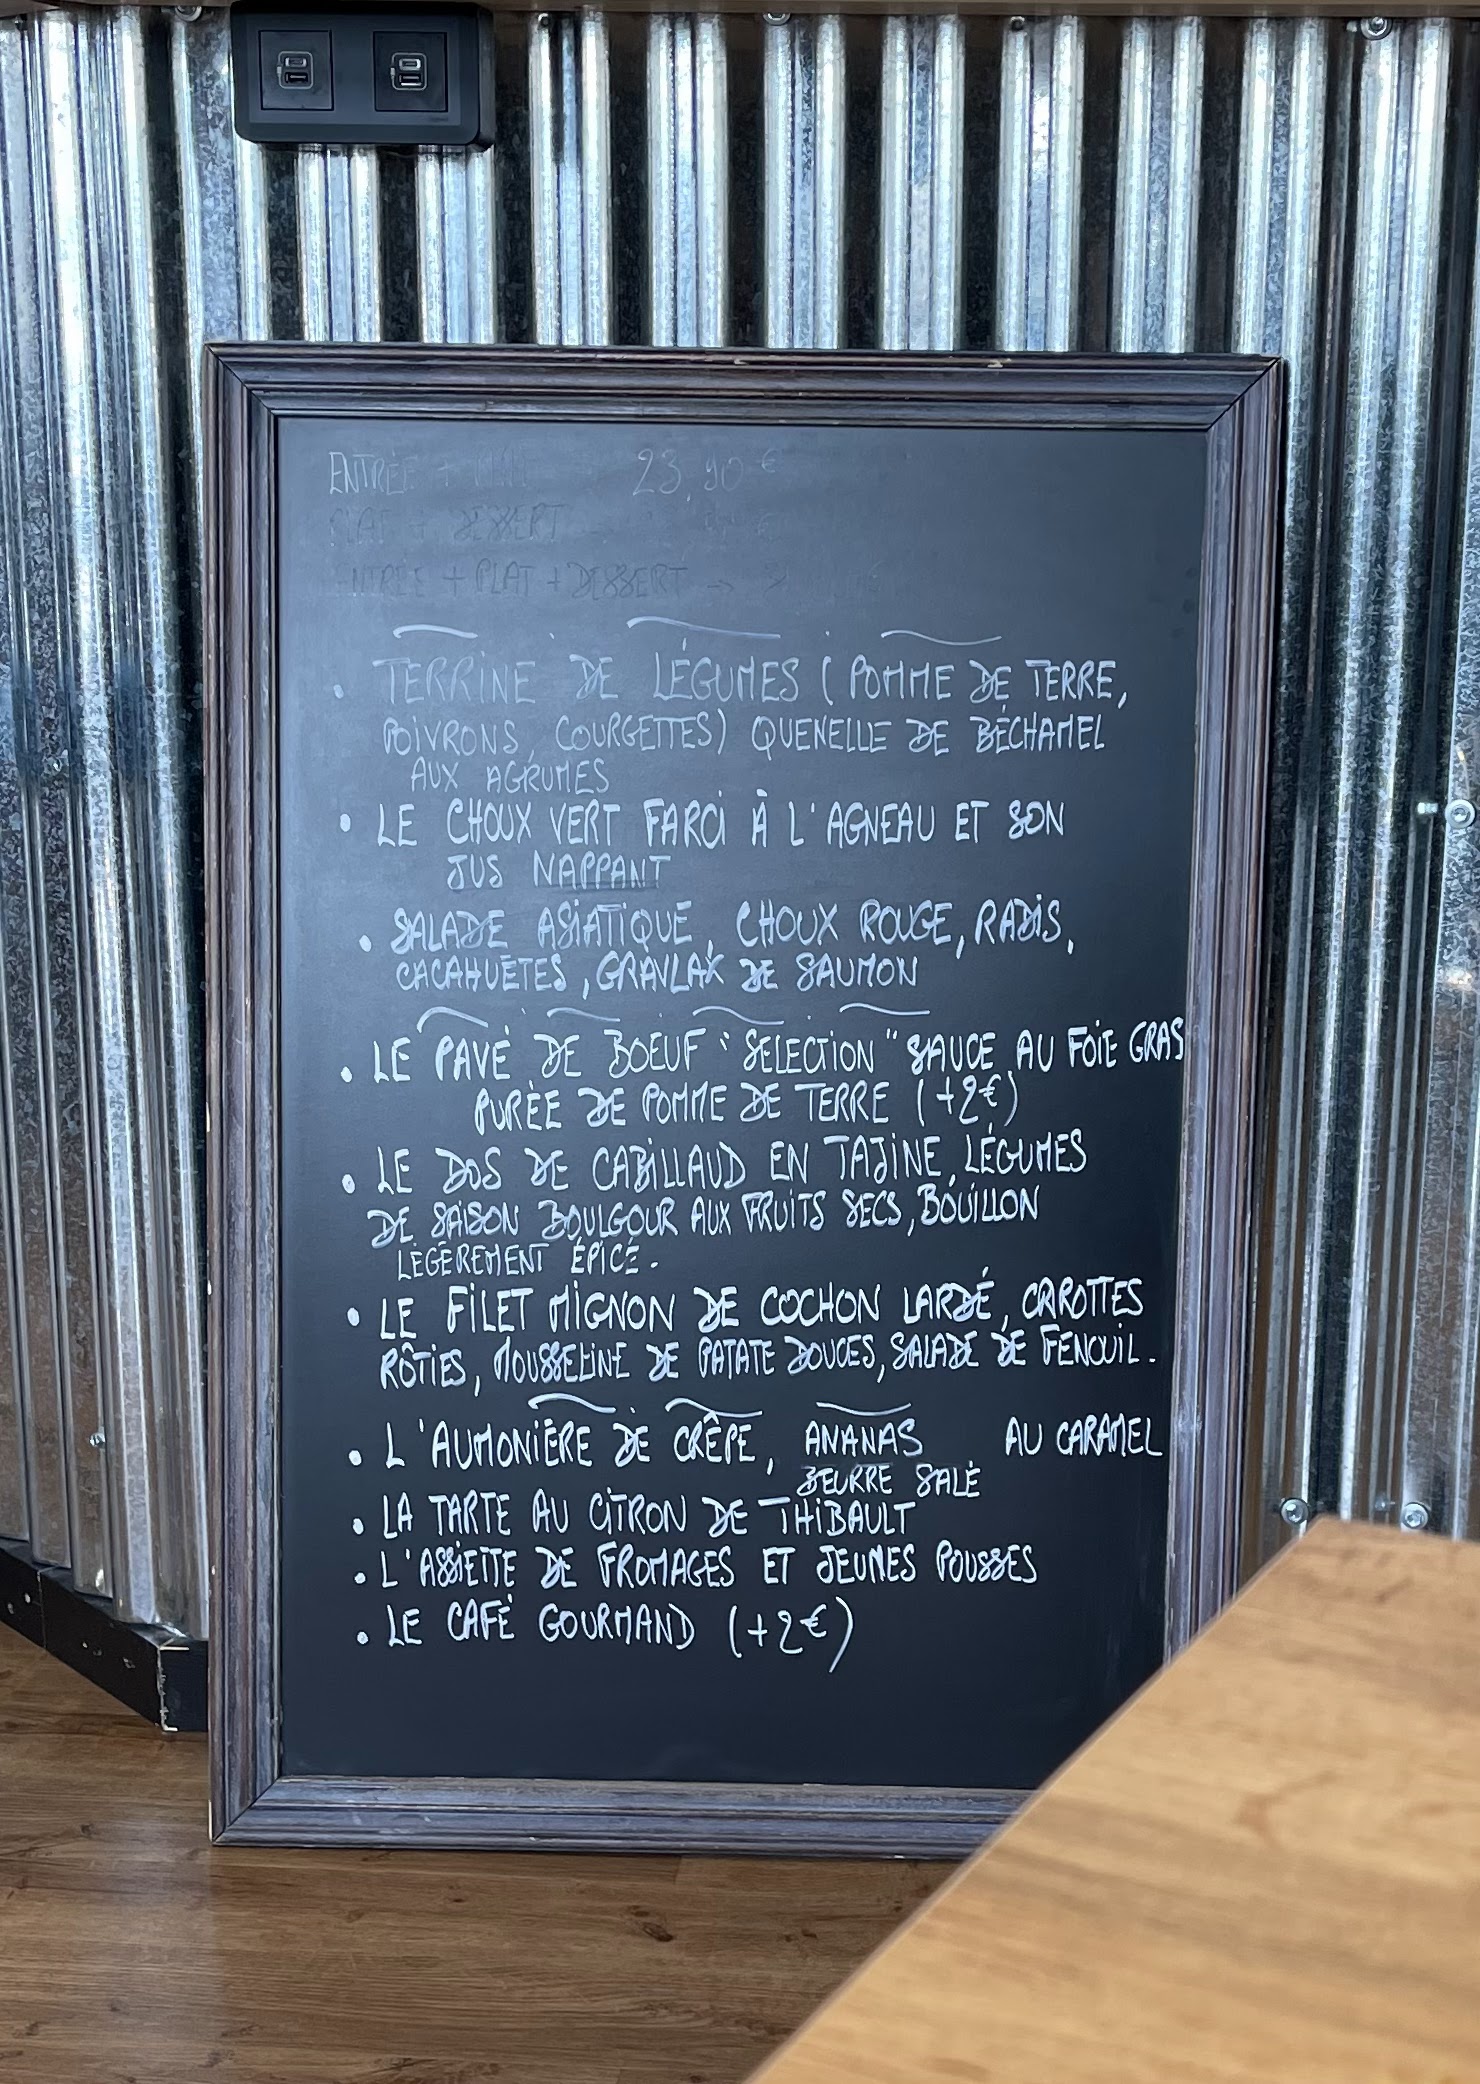 ENTRÉE + PLAT 23,90 €
PLAT + DESSERT
ENTRÉE + PLAT + DESSERT →
• TERRINE DE LÉGUMES ( POMME DE TERRE,
POIVRONS, COURGETTES) QUENELLE DE BÉCHAMEL
AUX AGRUMES
• LE CHOUX VERT FARCI À L'AGNEAU ET SON
JUS NAPPANT
• SALADE ASIATIQUE, CHOUX ROUGE, RADIS,
CACAHUÈTES, GRAVLAX DE SAUMON
• LE PAVÉ DE BOEUF "SELECTION" SAUCE AU FOIE GRAS
PURÉE DE POMME DE TERRE (+2€)
• LE DOS DE CABILLAUD EN TAJINE, LÉGUMES
DE SAISON BOULGOUR AUX FRUITS SECS, BOUILLON
LÉGÈREMENT ÉPICÉ.
• LE FILET MIGNON DE COCHON LARDÉ, CAROTTES
RÔTIES, MOUSSELINE DE PATATE DOUCES, SALADE DE FENOUIL.
• L'AUMONIÈRE DE CRÊPE, ANANAS AU CARAMEL
BEURRE SALÉ
• LA TARTE AU CITRON DE THIBAULT
• L'ASSIETTE DE FROMAGES ET JEUNES POUSSES
• LE CAFÉ GOURMAND (+2€)